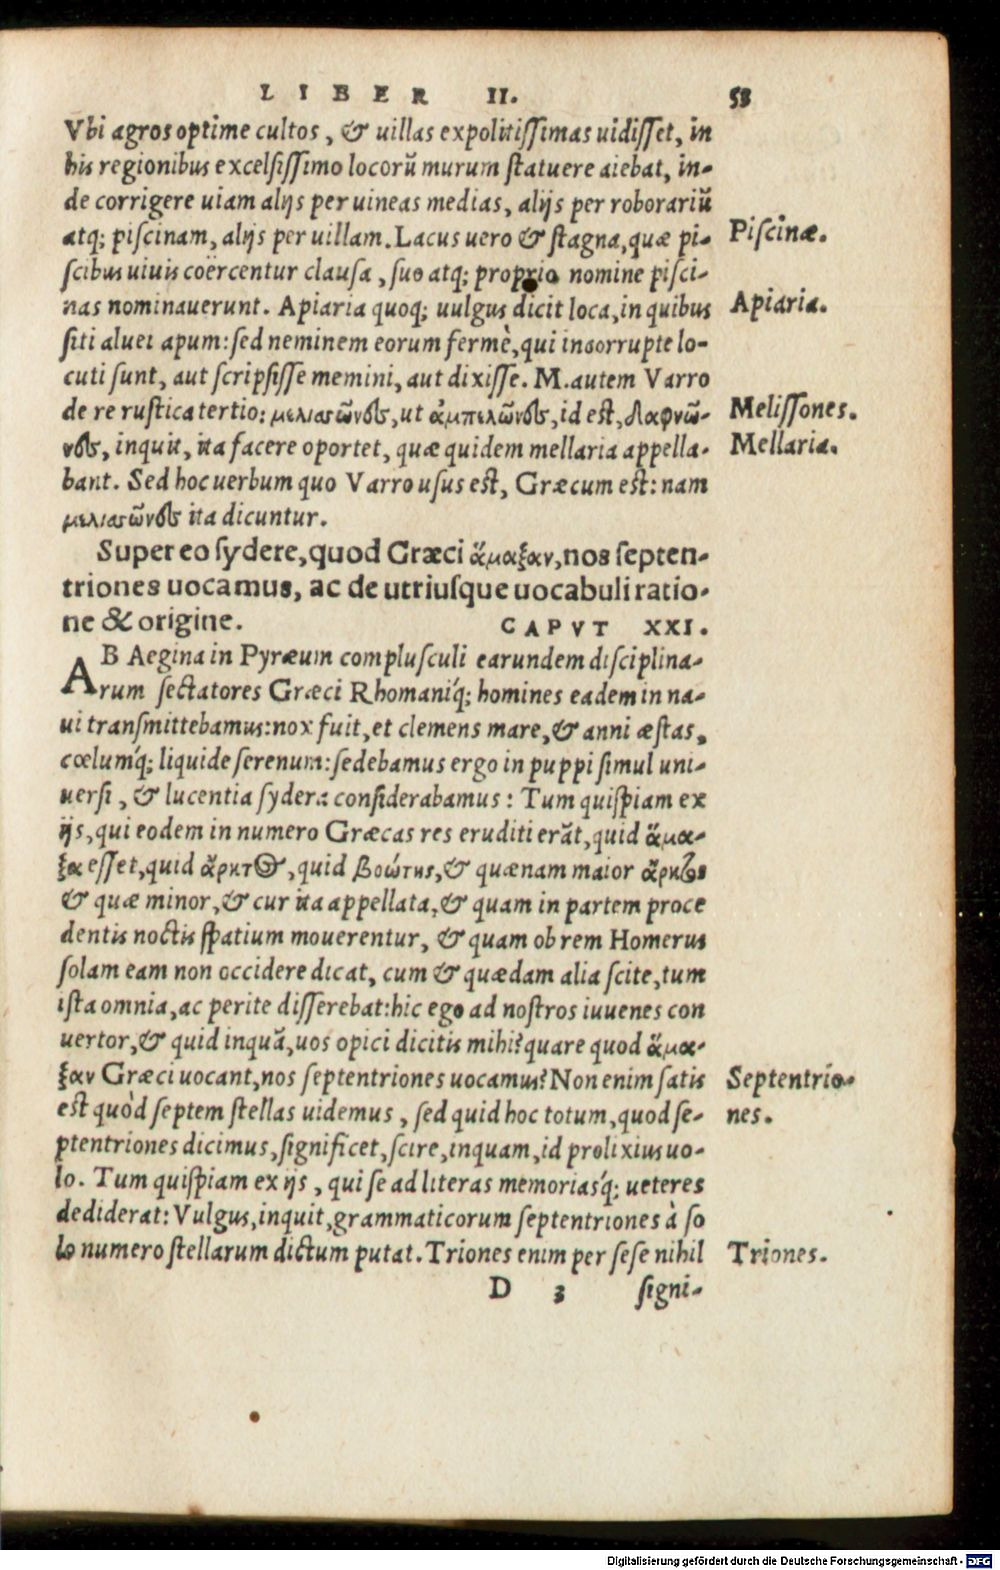 LIBER II. 53
Vbi agros optime cultos, & uillas expolitissimas uidisset, in
his regionibus excelsissimo locorū murum statuere aiebat, in-
de corrigere uiam alijs per uineas medias, alijs per roborariū
atq; piscinam, alijs per uillam. Lacus uero & stagna, quæ pi- Piscinæ.
scibus uiuis coërcentur clausa, suo atq; proprio nomine pisci-
nas nominauerunt. Apiaria quoq; uulgus dicit loca, in quibus Apiaria.
siti aluei apum: sed neminem eorum fermè, qui incorrupte lo-
cuti sunt, aut scripsisse memini, aut dixisse. M. autem Varro
de re rustica tertio: μελιασῶνας, ut ἀμπελῶνας, id est, δαφνῶ- Melissones.
νας, inquit, ita facere oportet, quæ quidem mellaria appella- Mellaria.
bant. Sed hoc uerbum quo Varro usus est, Græcum est: nam
μελιασῶνας ita dicuntur.
Super eo sydere, quod Græci ἅμαξαν, nos septen-
triones uocamus, ac de utriusque uocabuli ratio-
ne & origine. CAPVT XXI.
AB Aegina in Pyræum complusculi earundem disciplina-
rum sectatores Græci Rhomaniq́; homines eadem in na-
ui transmittebamus: nox fuit, et clemens mare, & anni æstas,
cœlumq́; liquide serenum: sedebamus ergo in puppi simul uni-
uersi, & lucentia sydera considerabamus: Tum quispiam ex
ijs, qui eodem in numero Græcas res eruditi erāt, quid ἅμα-
ξα esset, quid ἄρκτος, quid βοώτης, & quænam maior ἄρκτος
& quæ minor, & cur ita appellata, & quam in partem proce
dentis noctis spatium mouerentur, & quam ob rem Homerus
solam eam non occidere dicat, cum & quædam alia scite, tum
ista omnia, ac perite disserebat: hic ego ad nostros iuuenes con
uertor, & quid inquā, uos opici dicitis mihi? quare quod ἅμα-
ξαν Græci uocant, nos septentriones uocamus? Non enim satis Septentrio-
est quòd septem stellas uidemus, sed quid hoc totum, quod se- nes.
ptentriones dicimus, significet, scire, inquam, id prolixius uo-
lo. Tum quispiam ex ijs, qui se ad literas memoriasq́; ueteres
dediderat: Vulgus, inquit, grammaticorum septentriones à so
lo numero stellarum dictum putat. Triones enim per sese nihil Triones.
D 3 signi-
Digitalisierung gefördert durch die Deutsche Forschungsgemeinschaft - DFG